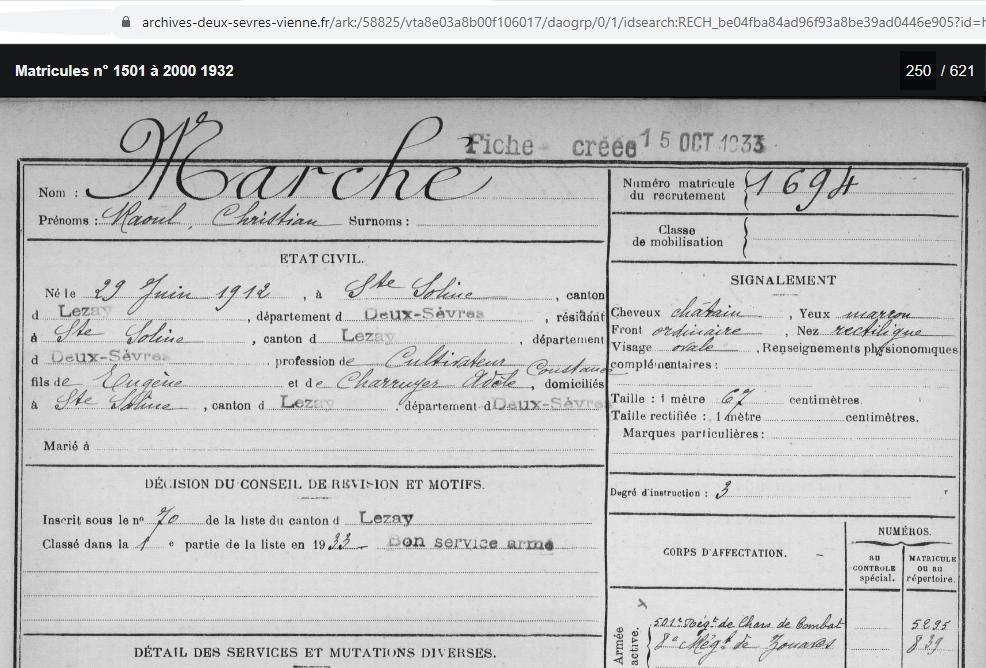 archives-deux-sevres-vienne.fr/ark:/58825/vta8e03a8b00f106017/daogrp/0/1/idsearch:RECH_be04fba84ad96f93a8be39ad0446e905?id=h
Matricules n° 1501 à 2000 1932
250 / 621
Fiche créée 15 OCT 1933
Nom : Marché
Prénoms : Raoul, Christian Surnoms :
ETAT CIVIL.
Né le 29 Juin 1912, à Ste Soline, canton
d Lezay, département d Deux-Sèvres, résidant
à Ste Soline, canton d Lezay, département
d Deux-Sèvres, profession de Cultivateur
fils de Eugène et de Charruyer Adèle Constance, domiciliés
à Ste Soline, canton d Lezay, département d Deux-Sèvres
Marié à
DÉCISION DU CONSEIL DE REVISION ET MOTIFS.
Inscrit sous le n° 70 de la liste du canton d Lezay
Classé dans la 1e partie de la liste en 1933 Bon service armé
DÉTAIL DES SERVICES ET MUTATIONS DIVERSES.
Numéro matricule du recrutement 1694
Classe de mobilisation
SIGNALEMENT
Cheveux châtain, Yeux marron
Front ordinaire, Nez rectiligne
Visage ovale, Renseignements physionomiques
complémentaires :
Taille : 1 mètre 67 centimètres.
Taille rectifiée : 1 mètre centimètres.
Marques particulières :
Degré d'instruction : 3
CORPS D'AFFECTATION.
NUMÉROS.
AU CONTROLE spécial.
MATRICULE OU AU répertoire.
Armée active.
501e Régt de Chars de Combat 5295
8e Régt de Zouaves 839